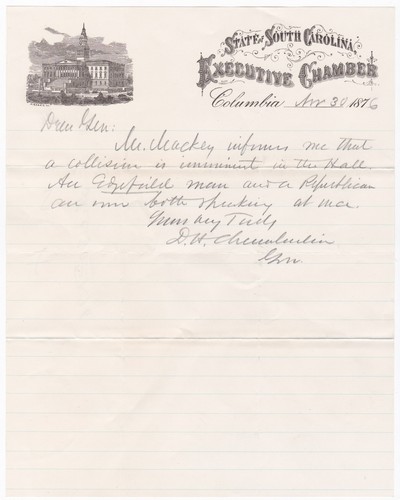 STATE of SOUTH CAROLINA,
EXECUTIVE CHAMBER
Columbia, Nov 30 1876
Dear Gen:
Mr. Mackey informs me that
a collision is imminent in the Hall.
An Edgefield man and a Republican
are now both speaking at once.
Yours very Truly
D. H. Chamberlain
Gov.